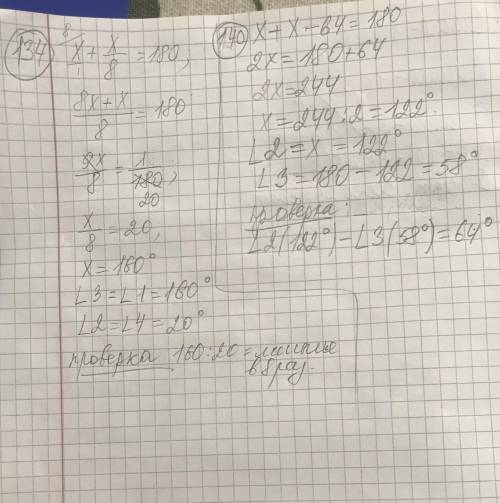 134
8
x + x/8 = 180,
(8x + x)/8 = 180
9x/8 = 180,
1
20
x/8 = 20,
x = 160°
∠3 = ∠1 = 160°
∠2 = ∠4 = 20°
проверка 160:20 = меньше
в 8 раз.
140
x + x - 64 = 180
2x = 180 + 64
2x = 244
x = 244:2 = 122°.
∠2 = x = 122°
∠3 = 180 - 122 = 58°
проверка:
∠2(122°) - ∠3(58°) = 64°